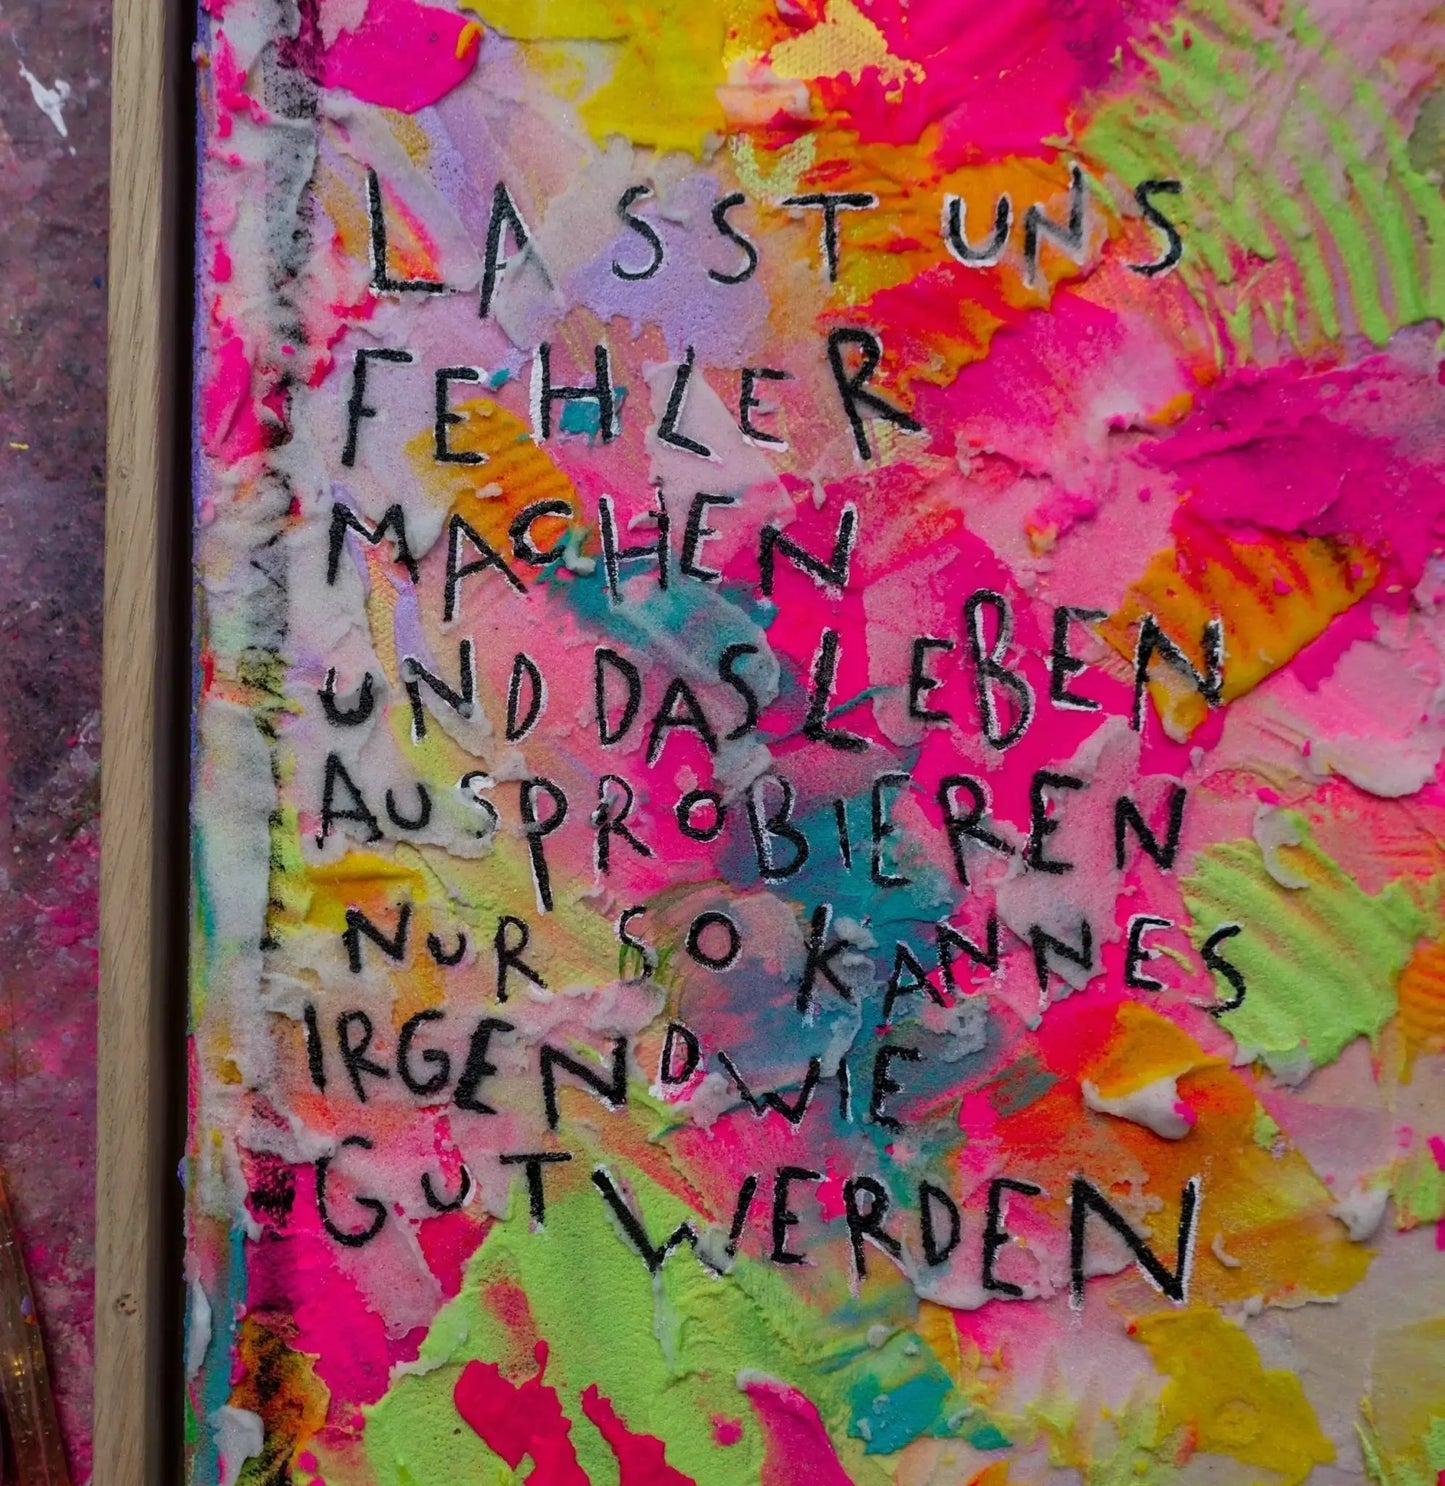 LASST UNS
FEHLER
MACHEN
UND DAS LEBEN
AUSPROBIEREN
NUR SO KANN ES
IRGENDWIE
GUT WERDEN